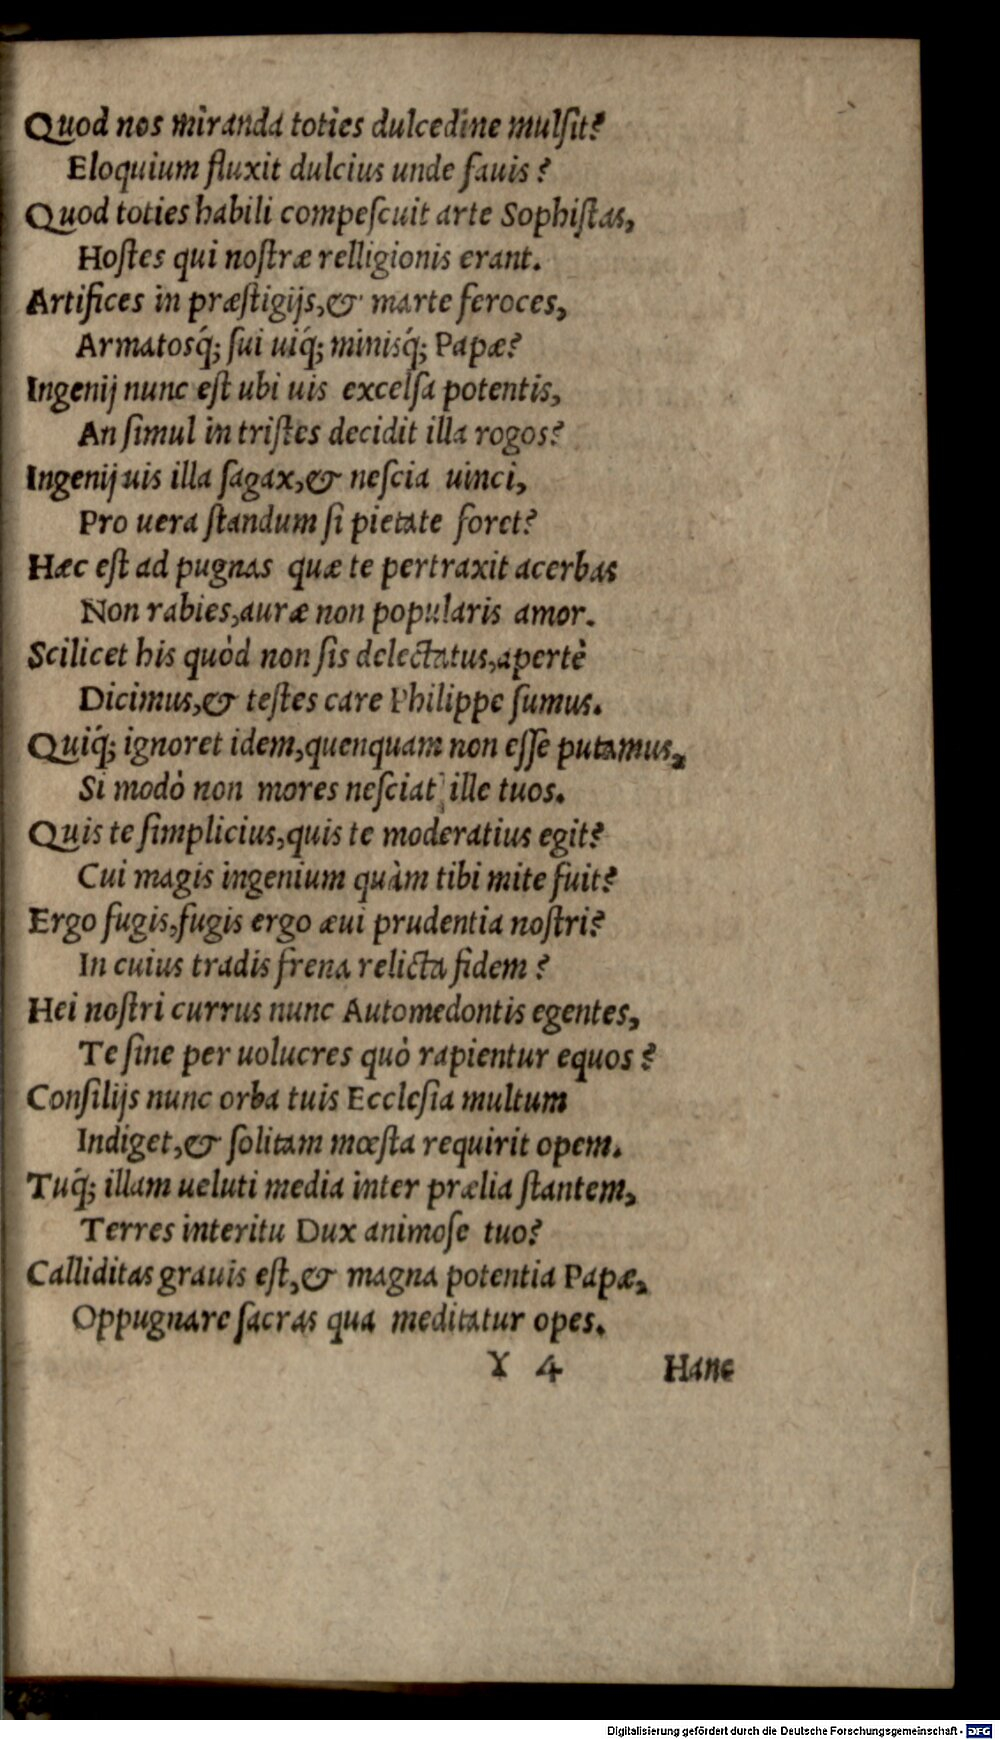 Quod nos miranda toties dulcedine mulſit?
Eloquium fluxit dulcius unde fauis ?
Quod toties habili compeſcuit arte Sophiſtas,
Hoſtes qui noſtræ relligionis erant.
Artifices in præſtigijs,& marte feroces,
Armatosq́; ſui uiq́; minisq́; Papæ?
Ingenij nunc eſt ubi uis excelſa potentis,
An ſimul in triſtes decidit illa rogos?
Ingenij uis illa ſagax,& neſcia uinci,
Pro uera ſtandum ſi pietate foret?
Hæc eſt ad pugnas quæ te pertraxit acerbas
Non rabies,auræ non popularis amor.
Scilicet his quòd non ſis delectatus,apertè
Dicimus,& teſtes care Philippe ſumus.
Quiq́; ignoret idem,quenquam non eſſe putamus,
Si modò non mores neſciat ille tuos.
Quis te ſimplicius,quis te moderatius egit?
Cui magis ingenium quàm tibi mite fuit?
Ergo fugis,fugis ergo æui prudentia noſtri?
In cuius tradis frena relicta fidem ?
Hei noſtri currus nunc Automedontis egentes,
Te ſine per uolucres quò rapientur equos ?
Conſilijs nunc orba tuis Eccleſia multum
Indiget,& ſolitam mœſta requirit opem.
Tuq́; illam ueluti media inter prælia ſtantem,
Terres interitu Dux animoſe tuo?
Calliditas grauis eſt,& magna potentia Papæ,
Oppugnare ſacras qua meditatur opes.
Y 4 Hanc
Digitalisierung gefördert durch die Deutsche Forschungsgemeinschaft - DFG